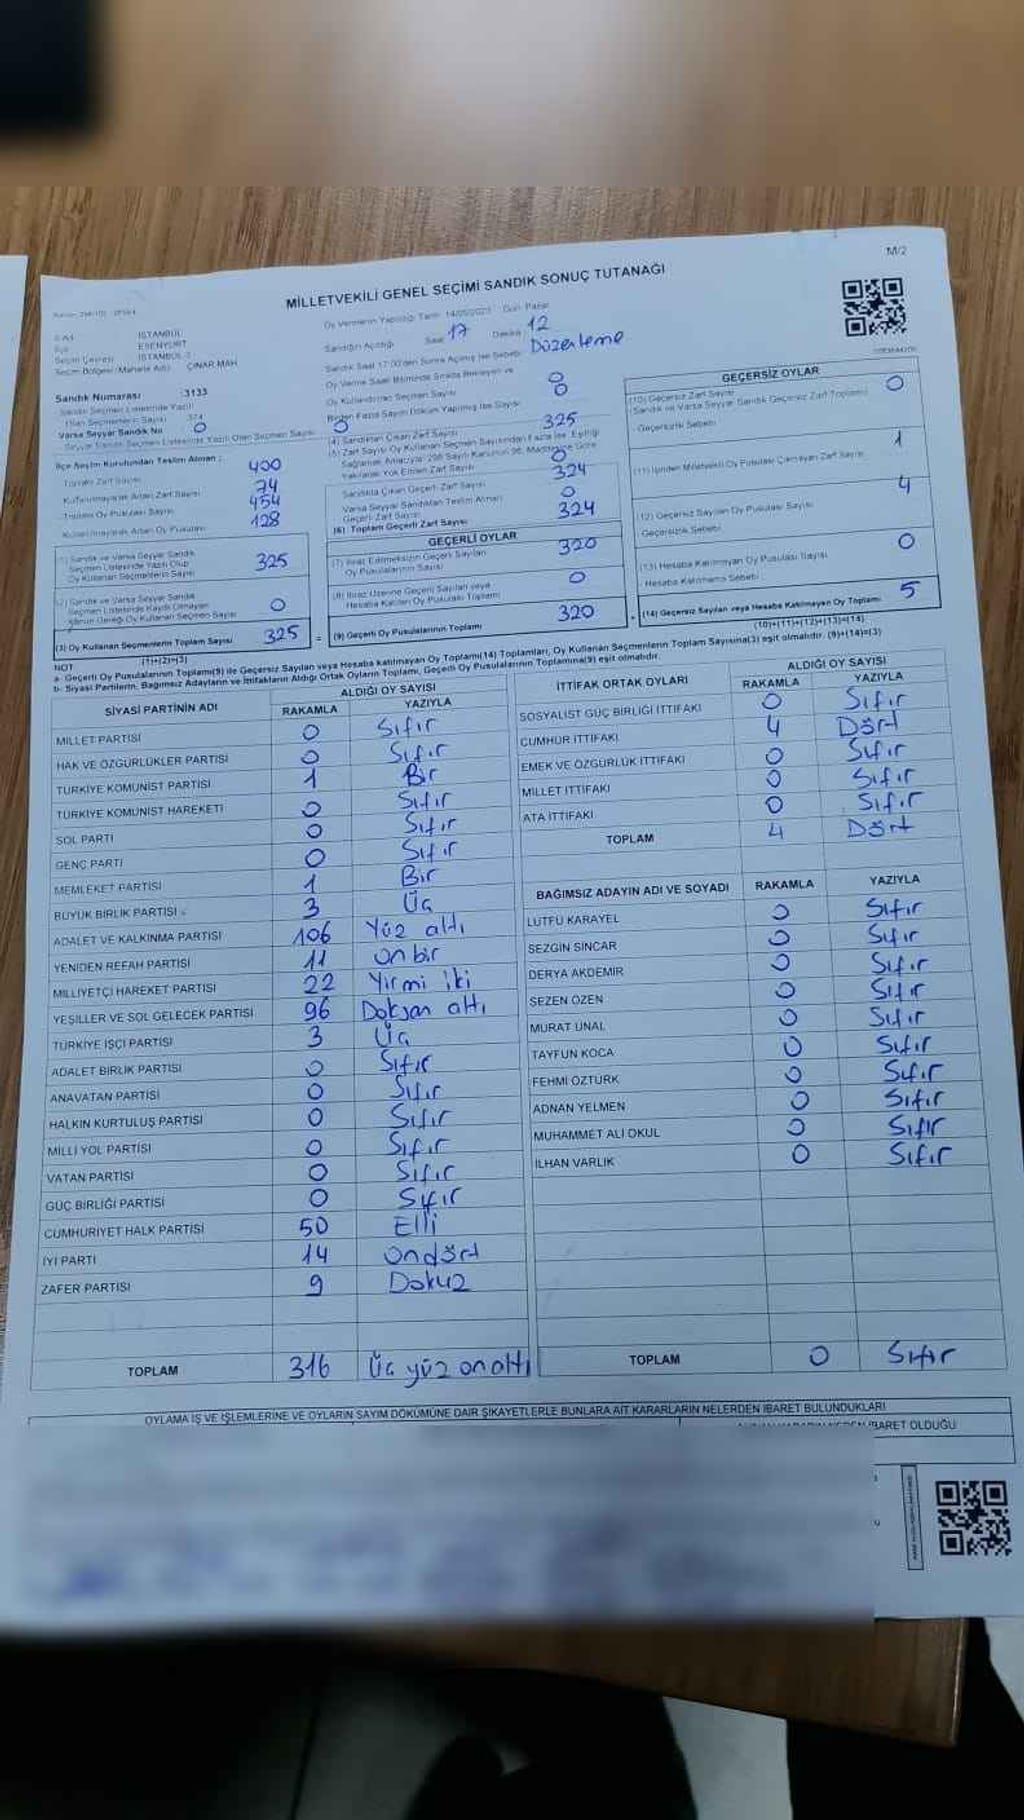 M/2
MİLLETVEKİLİ GENEL SEÇİMİ SANDIK SONUÇ TUTANAĞI
İSTANBUL
ESENYURT
İSTANBUL
ÇINAR MAH
Oy Vermenin Yapıldığı Tarih 14/05/2023 Gün Pazar
Sandığın Açıldığı Saat 17 Dakika 12
Düzenleme
Sandık Saat 17:00'den Sonra Açılmış İse Sebebi
Oy Verme Saati Bitiminde Sırada Bekleyen ve
Oy Kullandırılan Seçmen Sayısı 0
Birden Fazla Sayım Döküm Yapılmış İse Sayısı 0
Sandık Numarası :3133
Sandık Seçmen Listesinde Yazılı
Olan Seçmenlerin Sayısı 374
Varsa Seyyar Sandık No 0
Seyyar Sandık Seçmen Listesinde Yazılı Olan Seçmen Sayısı 0
İlçe Seçim Kurulundan Teslim Alınan :
Toplam Zarf Sayısı 400
Kullanılmayarak Artan Zarf Sayısı 74
Toplam Oy Pusulası Sayısı 454
Kullanılmayarak Artan Oy Pusulası 128
(1) Sandık ve Varsa Seyyar Sandık
Seçmen Listesinde Yazılı Olup
Oy Kullanan Seçmenlerin Sayısı 325
(2) Sandık ve Varsa Seyyar Sandık
Seçmen Listesinde Kaydı Olmayan
Kanun Gereği Oy Kullanan Seçmen Sayısı 0
(3) Oy Kullanan Seçmenlerin Toplam Sayısı 325
(1)+(2)=(3)
(4) Sandıktan Çıkan Zarf Sayısı 325
(5) Zarf Sayısı Oy Kullanan Seçmen Sayısından Fazla İse, Eşitliği
Sağlamak Amacıyla 298 Sayılı Kanunun 98. Maddesine Göre
Yakılarak Yok Edilen Zarf Sayısı 0
Sandıkta Çıkan Geçerli Zarf Sayısı 324
Varsa Seyyar Sandıktan Teslim Alınan
Geçerli Zarf Sayısı 0
(6) Toplam Geçerli Zarf Sayısı 324
GEÇERLİ OYLAR
(7) İtiraz Edilmeksizin Geçerli Sayılan
Oy Pusulalarının Sayısı 320
(8) İtiraz Üzerine Geçerli Sayılan veya
Hesaba Katılan Oy Pusulası Toplamı 0
= (9) Geçerli Oy Pusulalarının Toplamı 320
GEÇERSİZ OYLAR
(10) Geçersiz Zarf Sayısı
(Sandık ve Varsa Seyyar Sandık Geçersiz Zarf Toplamı) 0
Geçersizlik Sebebi
(11) İçinden Milletvekili Oy Pusulası Çıkmayan Zarf Sayısı 1
(12) Geçersiz Sayılan Oy Pusulası Sayısı 4
Geçersizlik Sebebi
(13) Hesaba Katılmayan Oy Pusulası Sayısı 0
Hesaba Katılmama Sebebi
+ (14) Geçersiz Sayılan veya Hesaba Katılmayan Oy Toplamı 5
(10)+(11)+(12)+(13)=(14)
NOT
a- Geçerli Oy Pusulalarının Toplamı(9) ile Geçersiz Sayılan veya Hesaba katılmayan Oy Toplamı(14) Toplamları, Oy Kullanan Seçmenlerin Toplam Sayısına(3) eşit olmalıdır. (9)+(14)=(3)
b- Siyasi Partilerin, Bağımsız Adayların ve İttifakların Aldığı Ortak Oyların Toplamı, Geçerli Oy Pusulalarının Toplamına(9) eşit olmalıdır.
SİYASİ PARTİNİN ADI ALDIĞI OY SAYISI
RAKAMLA YAZIYLA
MİLLET PARTİSİ 0 Sıfır
HAK VE ÖZGÜRLÜKLER PARTİSİ 0 Sıfır
TÜRKİYE KOMÜNİST PARTİSİ 1 Bir
TÜRKİYE KOMÜNİST HAREKETİ 0 Sıfır
SOL PARTİ 0 Sıfır
GENÇ PARTİ 0 Sıfır
MEMLEKET PARTİSİ 1 Bir
BÜYÜK BİRLİK PARTİSİ 3 Üç
ADALET VE KALKINMA PARTİSİ 106 Yüz altı
YENİDEN REFAH PARTİSİ 11 on bir
MİLLİYETÇİ HAREKET PARTİSİ 22 Yirmi iki
YEŞİLLER VE SOL GELECEK PARTİSİ 96 Doksan altı
TÜRKİYE İŞÇİ PARTİSİ 3 Üç
ADALET BİRLİK PARTİSİ 0 Sıfır
ANAVATAN PARTİSİ 0 Sıfır
HALKIN KURTULUŞ PARTİSİ 0 Sıfır
MİLLİ YOL PARTİSİ 0 Sıfır
VATAN PARTİSİ 0 Sıfır
GÜÇ BİRLİĞİ PARTİSİ 0 Sıfır
CUMHURİYET HALK PARTİSİ 50 Elli
İYİ PARTİ 14 Ondört
ZAFER PARTİSİ 9 Dokuz
TOPLAM 316 Üç yüz on altı
İTTİFAK ORTAK OYLARI ALDIĞI OY SAYISI
RAKAMLA YAZIYLA
SOSYALİST GÜÇ BİRLİĞİ İTTİFAKI 0 Sıfır
CUMHUR İTTİFAKI 4 Dört
EMEK VE ÖZGÜRLÜK İTTİFAKI 0 Sıfır
MİLLET İTTİFAKI 0 Sıfır
ATA İTTİFAKI 0 Sıfır
TOPLAM 4 Dört
BAĞIMSIZ ADAYIN ADI VE SOYADI RAKAMLA YAZIYLA
LÜTFÜ KARAYEL 0 Sıfır
SEZGİN SİNCAR 0 Sıfır
DERYA AKDEMİR 0 Sıfır
SEZEN ÖZEN 0 Sıfır
MURAT ÜNAL 0 Sıfır
TAYFUN KOCA 0 Sıfır
FEHMİ ÖZTÜRK 0 Sıfır
ADNAN YELMEN 0 Sıfır
MUHAMMET ALİ OKUL 0 Sıfır
İLHAN VARLIK 0 Sıfır
TOPLAM 0 Sıfır
OYLAMA İŞ VE İŞLEMLERİNE VE OYLARIN SAYIM DÖKÜMÜNE DAİR ŞİKAYETLERLE BUNLARA AİT KARARLARIN NELERDEN İBARET BULUNDUKLARI
İBARET OLDUĞU